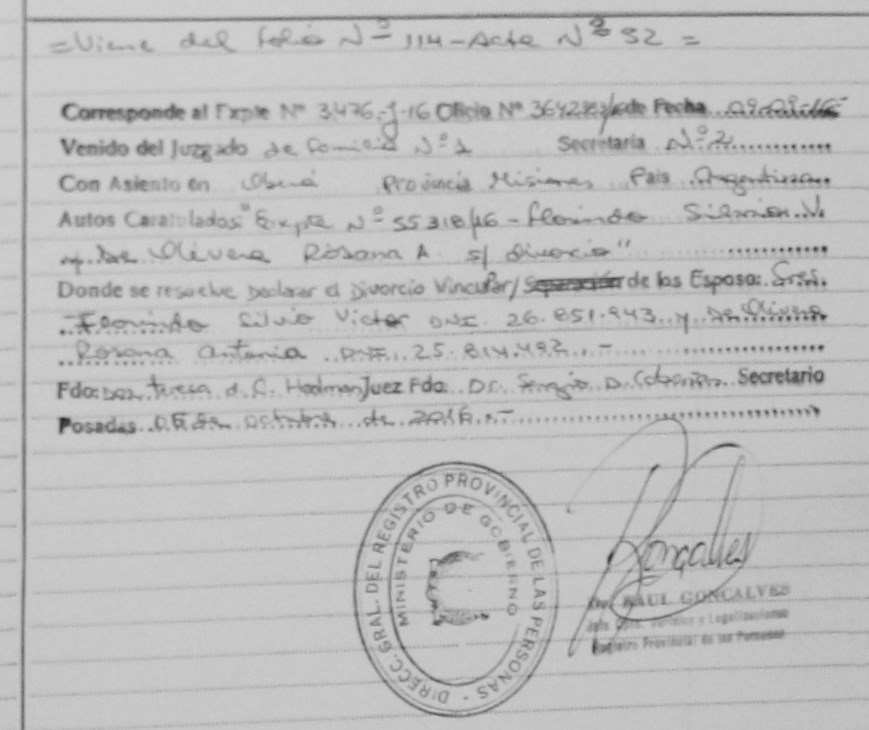 =Viene del folio Nº 114-Acta Nº 52 =
Corresponde al Expte Nº 3476-J-16 Oficio Nº de Fecha
Venido del Juzgado de Familia Nº 1 Secretaría Nº 2
Con Asiento en Oberá Provincia Misiones Pais Argentina
Autos Caratulados "Expte Nº 55318/16 - Florindo Silvio V.
y De Olivera Rosana A. s/ divorcio"
Donde se resuelve Declarar el Divorcio Vincular/Separación de los Esposo: Sres.
Florindo Silvio Victor DNI. 26.851.943 y De Olivera
Rosana Antonia DNI. 25.814.492.-
Fdo: Dra. Teresa d. C. Hedman Juez Fdo. Dr. Sergio D. Secretario
Posadas 05 de octubre de 2016.-
DIRECC. GRAL. DEL REGISTRO PROVINCIAL DE LAS PERSONAS -
MINISTERIO DE GOBIERNO
Goncalves
RAUL GONCALVES
Jefe Dpto. Jurídico y Legalizaciones
Registro Provincial de las Personas